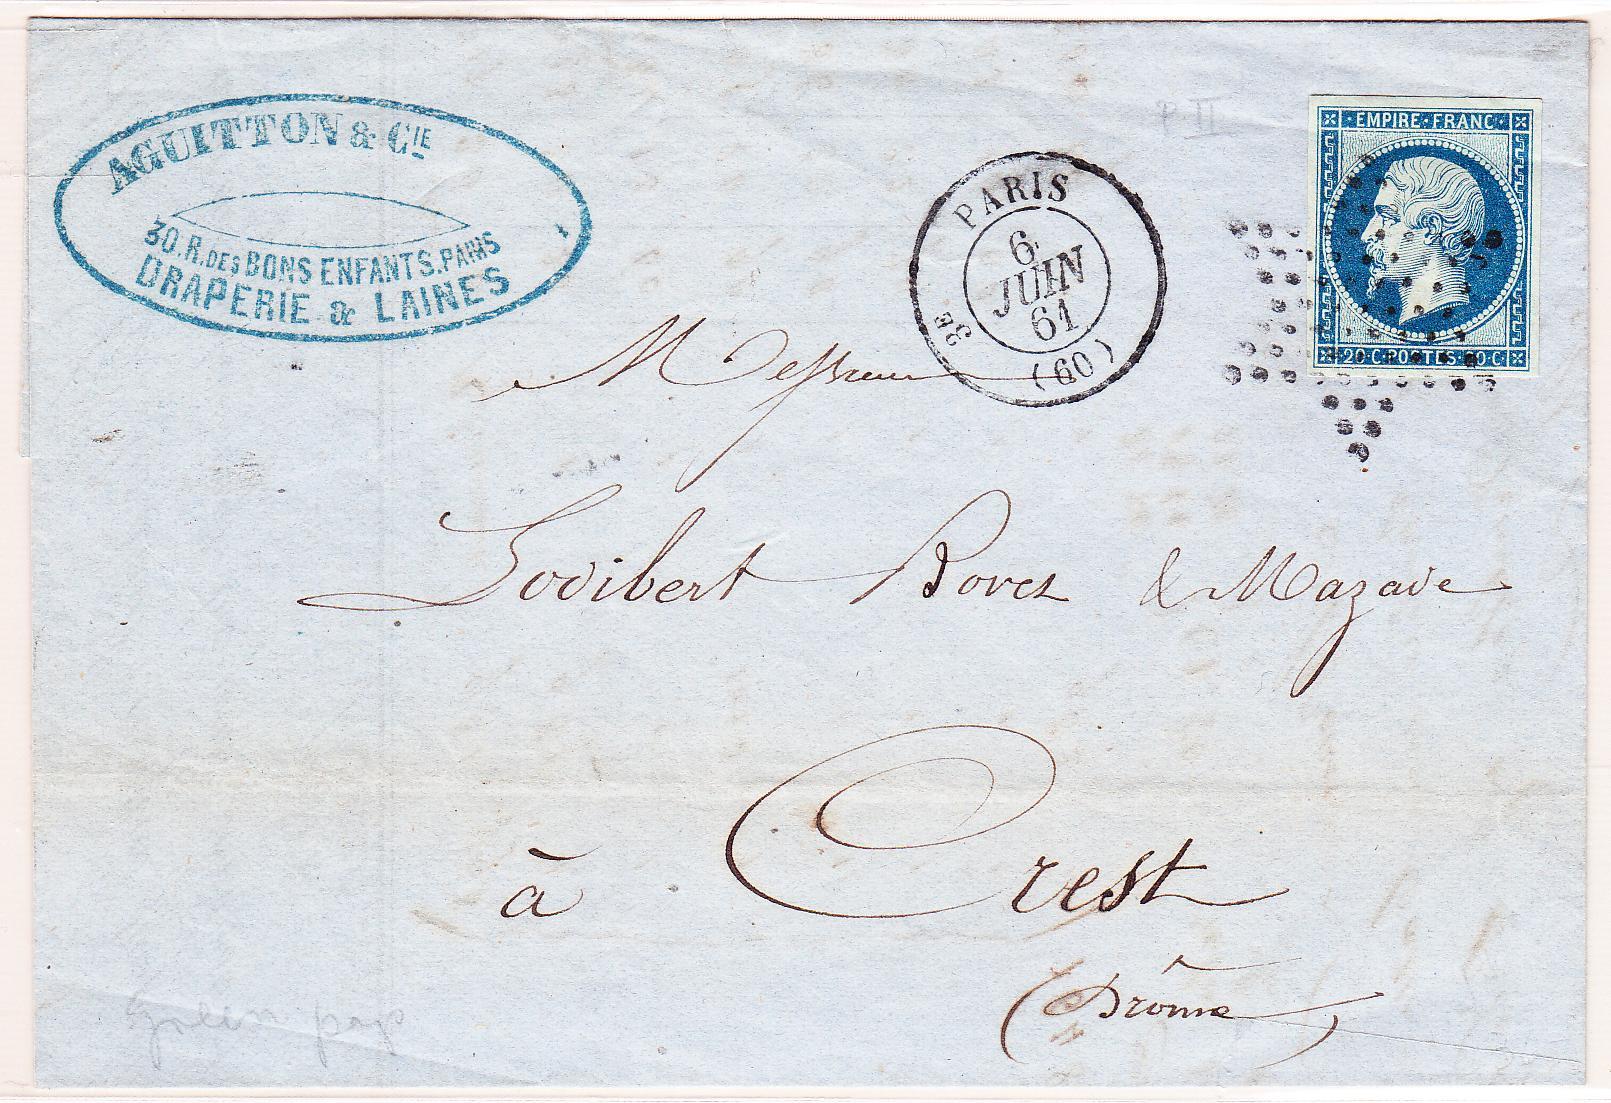 AGUITTON & CIE
30.R.DES BONS ENFANTS.PARIS
DRAPERIE & LAINES
P II
PARIS
6
JUIN
61
3E
(60)
EMPIRE·FRANC·
20·C·POSTES·20·C·
Messieurs
&
à Crest
(Drôme)